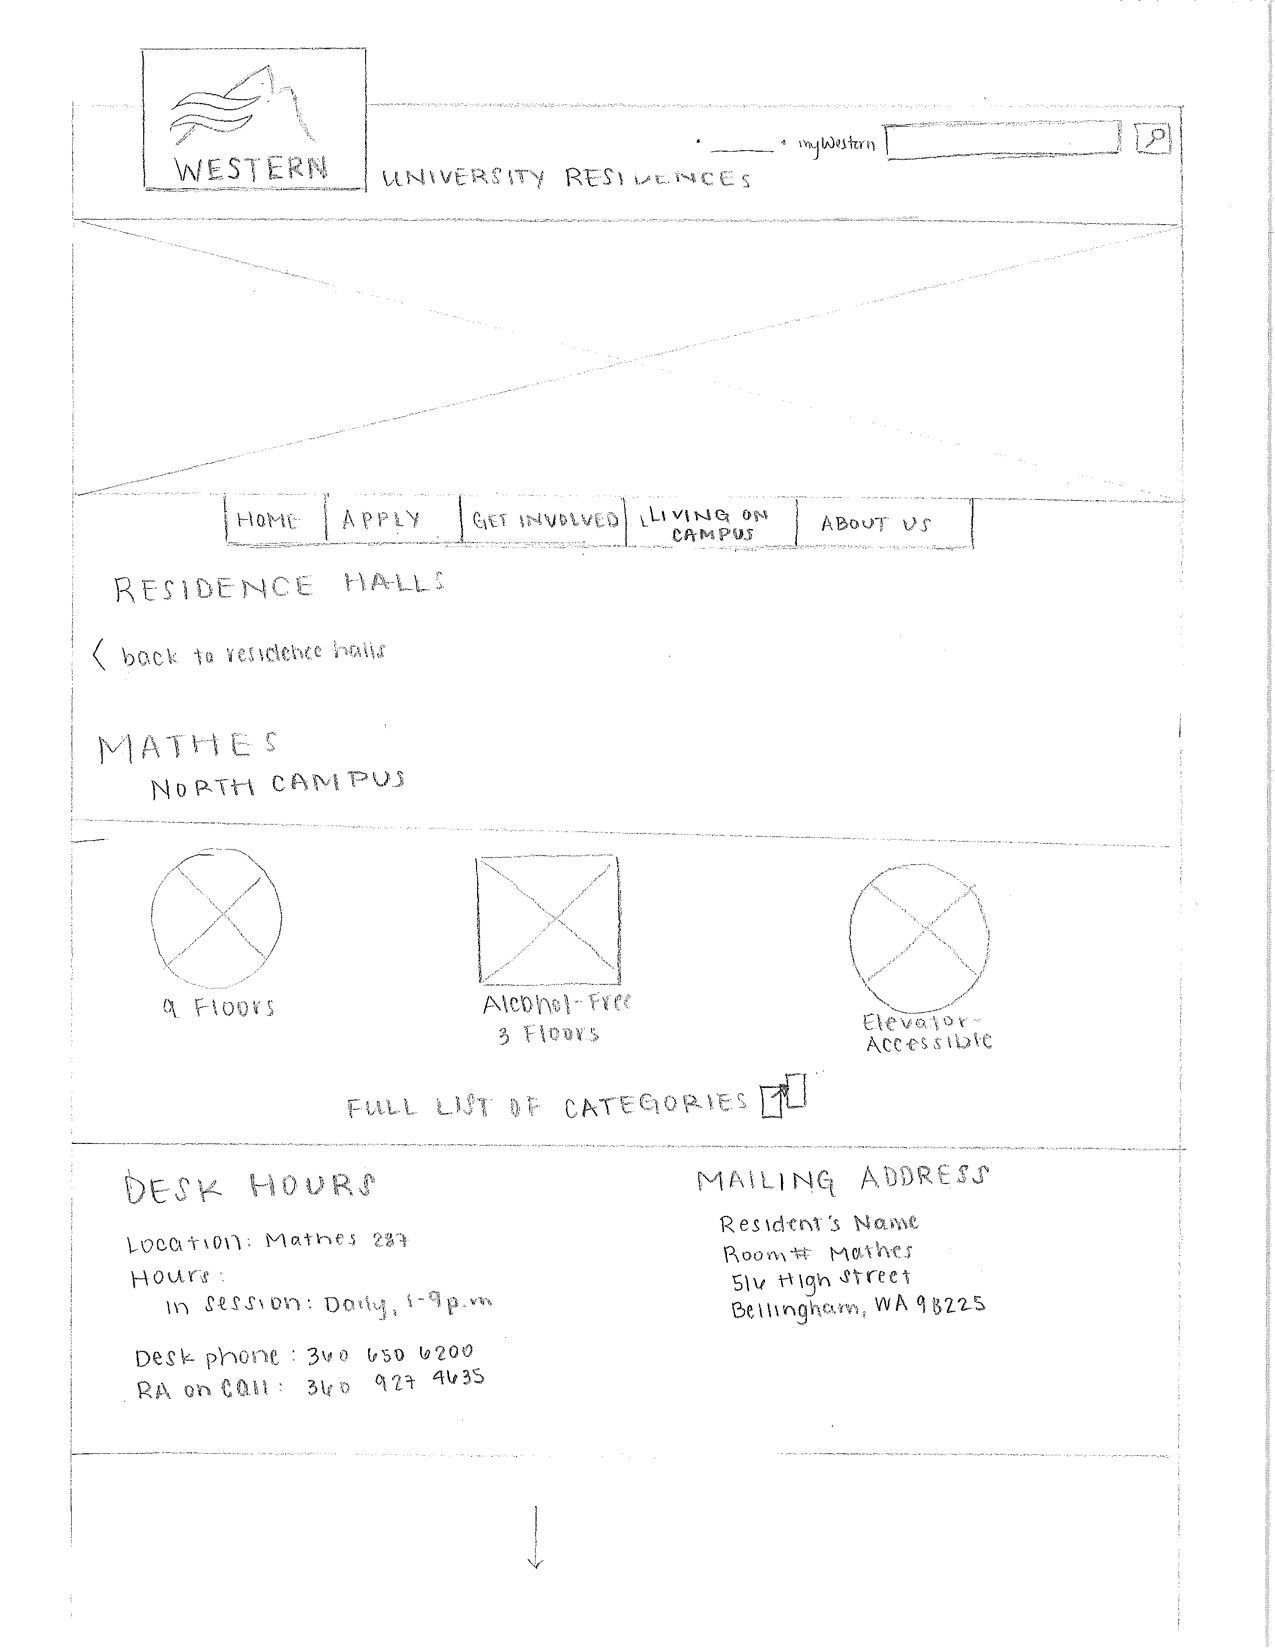 WESTERN
UNIVERSITY RESIDENCES
myWestern
HOME
APPLY
GET INVOLVED
LIVING ON
CAMPUS
ABOUT US
RESIDENCE HALLS
< back to residence halls
MATHES
NORTH CAMPUS
9 Floors
Alcohol-Free
3 Floors
Elevator-
Accessible
FULL LIST OF CATEGORIES
DESK HOURS
Location: Mathes 287
Hours:
In session: Daily, 1-9p.m
Desk phone: 360 650 6200
RA on Call: 360 927 4635
MAILING ADDRESS
Resident's Name
Room# Mathes
516 High Street
Bellingham, WA 98225